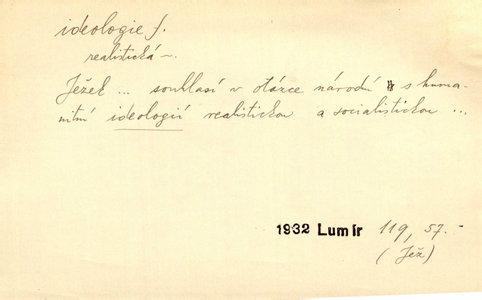 ideologie f.
realistická ~.
Ježek ... souhlasí v otázce národů s huma-
nitní ideologií realistickou a socialistickou ...
1932 Lumír 119, 57. -
( Jež )